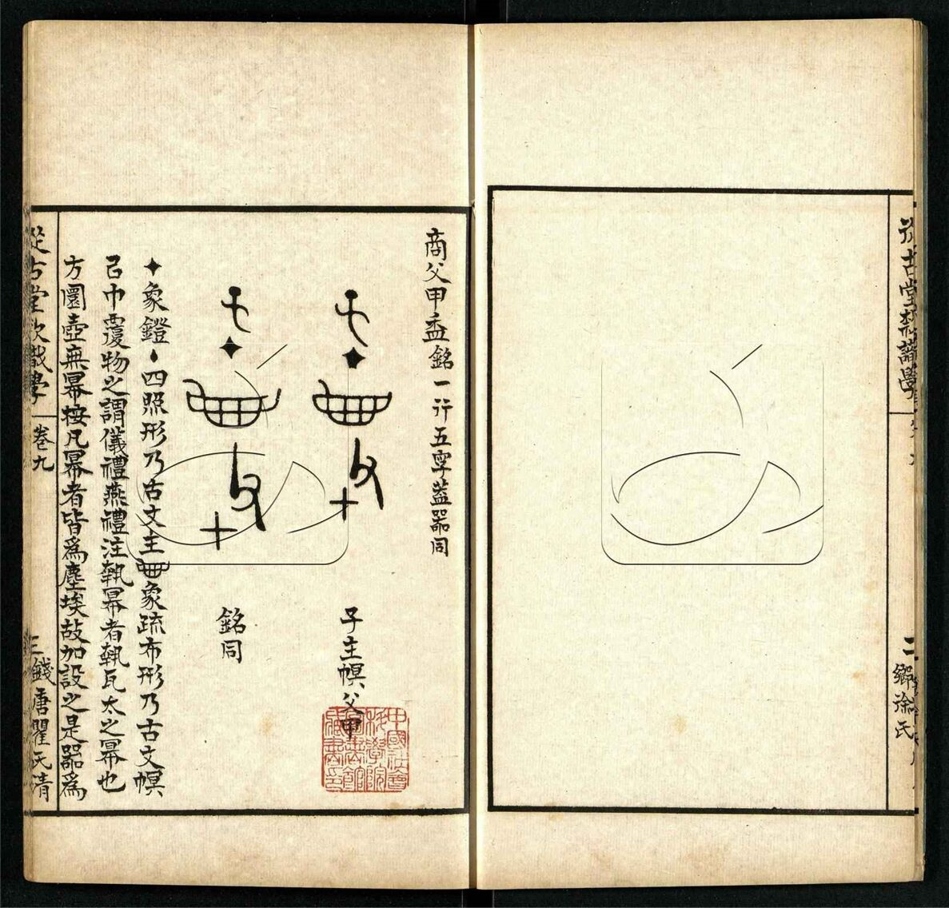 商父甲盉銘一行五字蓋器同
子主幎父甲
銘同
象鐙四照形乃古文主象疏布形乃古文幎
已巾覆物之謂儀禮燕禮注執冪者執瓦太之冪也
方圜壺無冪按凡冪者皆爲塵埃故加設之是器爲
從古堂款識學 卷九
三 錢唐瞿氏清
中國社會科學院
徐氏